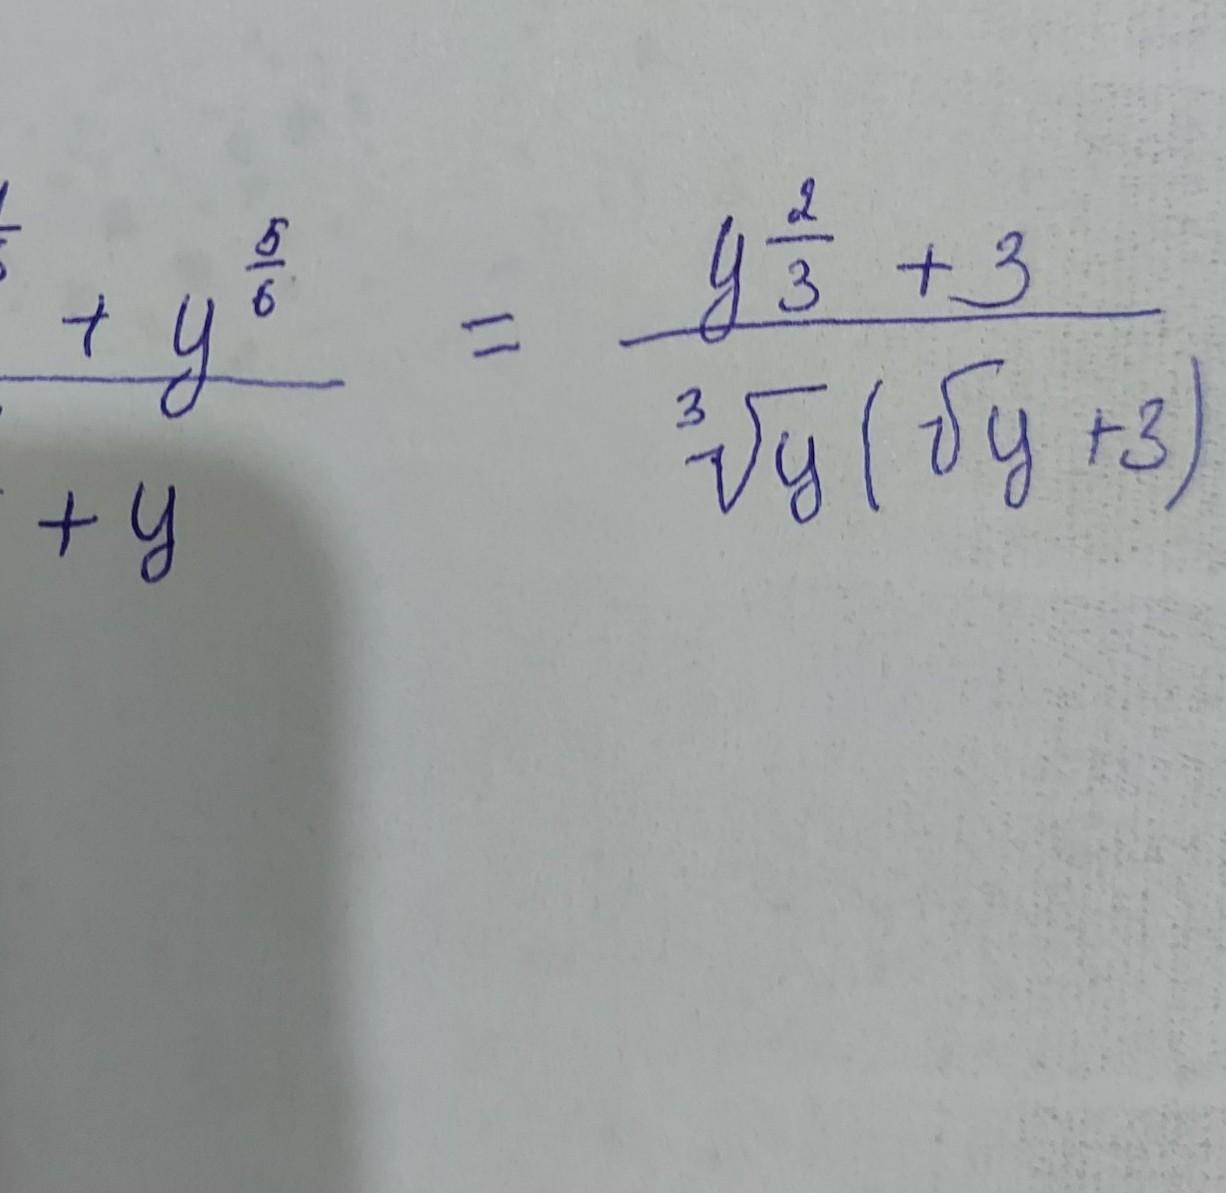 + y^{\frac{5}{6}} = \frac{y^{\frac{2}{3}} + 3}{\sqrt[3]{y} (\sqrt{y} + 3)}
+ y